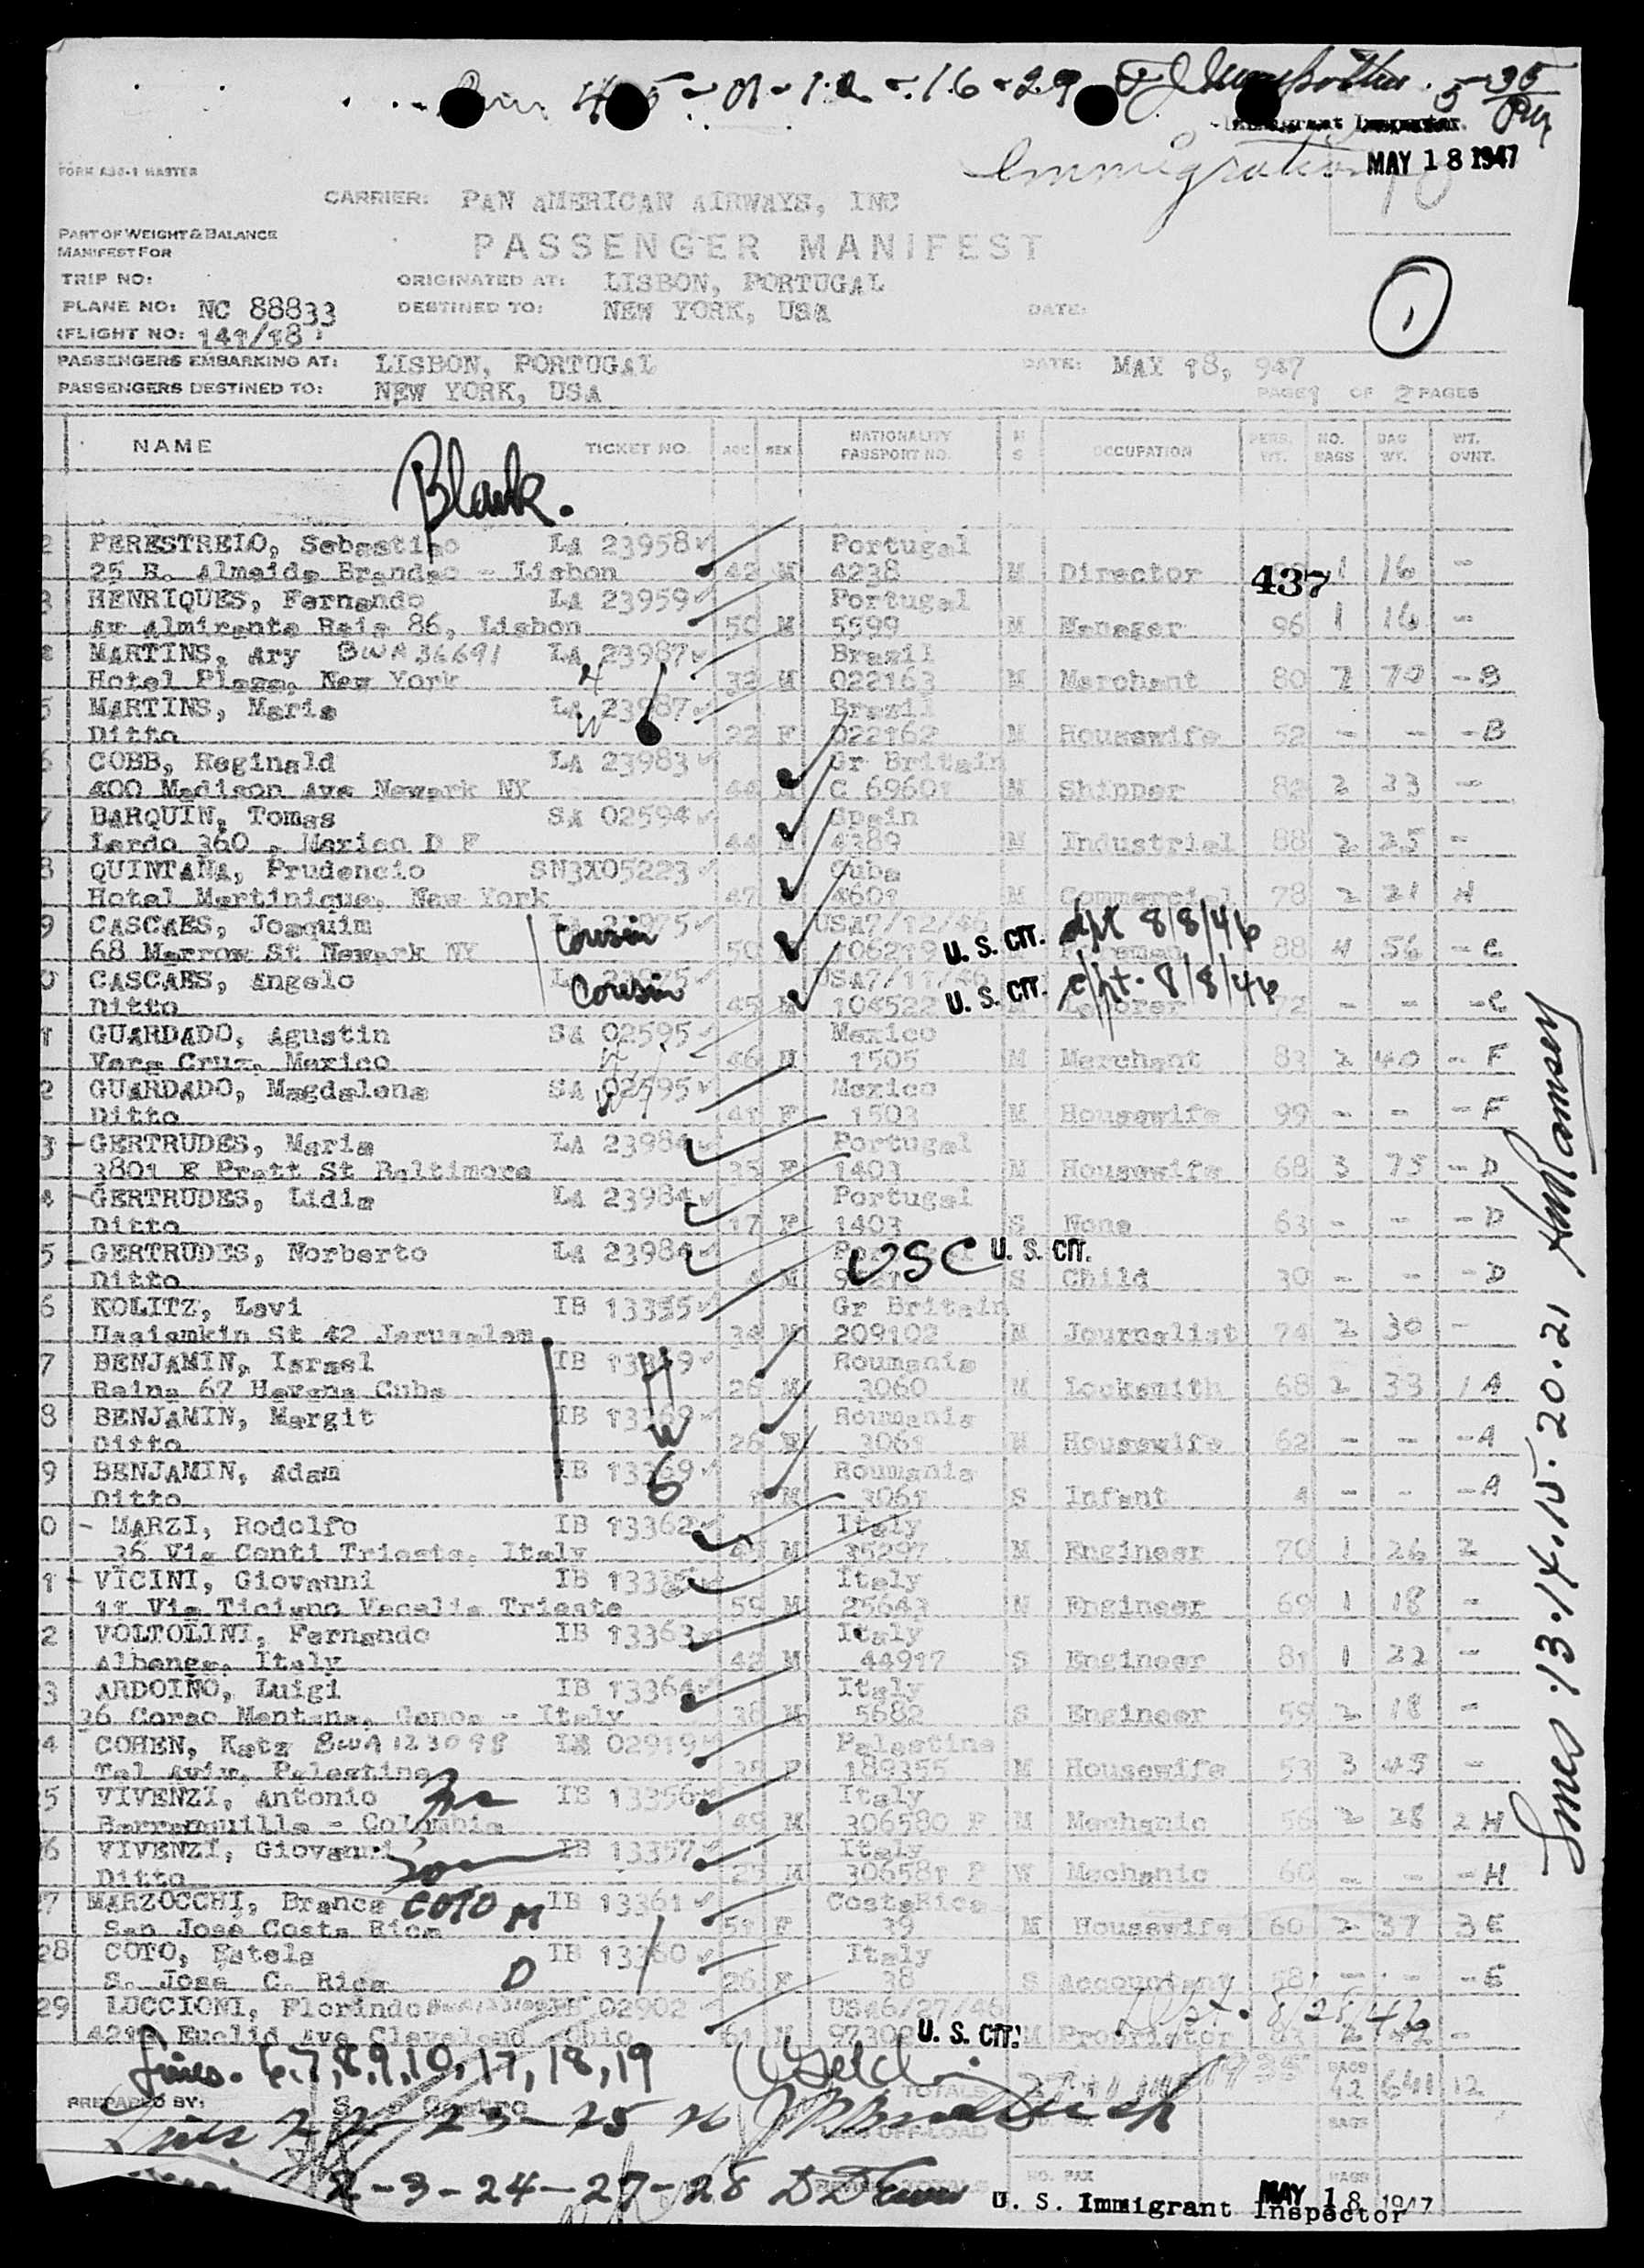 45-01-12-16-29
5-35
PM
Immigrant Inspector.
Immigration
MAY 18 1947
10
FORM A30-1 MASTER
CARRIER: PAN AMERICAN AIRWAYS, INC
PART OF WEIGHT & BALANCE
MANIFEST FOR
PASSENGER MANIFEST
TRIP NO: ORIGINATED AT: LISBON, PORTUGAL
PLANE NO: NC 88833 DESTINED TO: NEW YORK, USA DATE:
(FLIGHT NO: 141/18 )
1
PASSENGERS EMBARKING AT: LISBON, PORTUGAL DATE: MAY 18, 947
PASSENGERS DESTINED TO: NEW YORK, USA PAGE 1 OF 2 PAGES
NAME TICKET NO. AGE SEX NATIONALITY PASSPORT NO. M S OCCUPATION PERS. WT. NO. BAGS BAG WT. WT. OVNT.
Blank.
2 PERESTRELO, Sebastiao LA 23958 Portugal
25 R. Almeida Brandao - Lisbon 42 M 4238 M Director 437 1 16 -
3 HENRIQUES, Fernando LA 23959 Portugal
Av Almirante Reis 86, Lisbon 50 M 5599 M Manager 96 1 16 -
MARTINS, Ary BWA 36691 LA 23987 Brazil
Hotel Plaza, New York H 32 M 022163 M Merchant 80 7 70 - B
5 MARTINS, Maria LA 23987 Brazil
Ditto W 22 F 022162 M Housewife 52 - - - B
6 COBB, Reginald LA 23983 Gr Britain
400 Madison Ave Newark NY 44 M C 69601 M Shipper 82 2 33 -
7 BARQUIN, Tomas SA 02594 Spain
Lerdo 360 , Mexico D F 44 M 4389 M Industrial 88 2 25 -
8 QUINTANA, Prudencio SN3X05223 Cuba
Hotel Martinique, New York 47 M 4601 M Commercial 78 2 21 H
9 CASCAES, Joaquim Cousin LA 23975 USA7/12/46
68 Marrow St Newark NY 50 M 106219 U. S. CIT. dpt 8/8/46 88 4 56 - C
0 CASCAES, Angelo Cousin LA 23975 USA7/11/46
Ditto 45 M 104522 U. S. CIT. dpt. 8/8/46 Laborer 72 - - - C
1 GUARDADO, Agustin SA 02595 Mexico
Vera Cruz, Mexico H 46 M 1505 M Merchant 83 2 40 - F
2 GUARDADO, Magdalena SA 02595 Mexico
Ditto W 41 F 1503 M Housewife 99 - - - F
3 - GERTRUDES, Maria LA 23984 Portugal
3801 E Pratt St Baltimore 35 F 1403 M Housewife 68 3 75 - D
4 - GERTRUDES, Lidia LA 23984 Portugal
Ditto 17 F 1403 S None 63 - - - D
5 - GERTRUDES, Norberto LA 23984 USC U. S. CIT.
Ditto 4 M S Child 30 - - - D
6 KOLITZ, Levi IB 13355 Gr Britain
Ussiamkin St 42 Jerusalem 34 M 209102 M Journalist 74 2 30 -
7 BENJAMIN, Israel IB 13369 H Roumania
Reina 67 Havana Cuba 26 M 3060 M Locksmith 68 2 33 1 A
8 BENJAMIN, Margit IB 13369 W Roumania
Ditto 26 F 3061 M Housewife 62 - - - A
9 BENJAMIN, Adam IB 13369 Roumania
Ditto M 3061 S Infant 4 - - - A
0 - MARZI, Rodolfo IB 13362 Italy
36 Via Conti Trieste, Italy 45 M 35297 M Engineer 70 1 26 2
1 - VICINI, Giovanni IB 13335 Italy
11 Via Ticiano Vecelia Trieste 59 M 25643 M Engineer 69 1 18 -
2 VOLTOLINI, Fernando IB 13363 Italy
Albenga, Italy 42 M 44917 S Engineer 81 1 22 -
3 ARDOINO, Luigi IB 13364 Italy
36 Corso Mentana, Genoa - Italy 38 M 5682 S Engineer 59 2 18 -
4 COHEN, Katz BWA 123098 IB 02919 Palestine
Tel Aviv, Palestine 35 F 189355 M Housewife 53 3 45 -
5 VIVENZI, Antonio IB 13356 Italy
Barranquilla - Columbia 49 M 306580 P M Mechanic 56 2 28 2 H
6 VIVENZI, Giovanni son IB 13357 Italy
Ditto 23 M 306581 P W Mechanic 60 - - - H
7 MARZOCCHI, Branca COTO M IB 13361 CostaRica
San Jose Costa Rica 51 F 39 M Housewife 60 2 37 3 E
28 COTO, Estela IB 13360 Italy
S. Jose C. Rica D 26 F 38 S Accountant 58 - - - E
29 LUCCIONI, Florindo 02902 USA6/27/46 Dpt. 8/28/46
4212 Euclid Ave Cleveland Ohio 61 M U. S. CIT. M Proprietor 83 2 -
Lines. 6,7,8,9,10,17,18,19
TOTALS BAGS 42 641 12
PREPARED BY: Castro
Lines 22-23-25 26
OFF LOAD BAGS
2-3-24-27-28
NO. PAX BAGS
U. S. Immigrant Inspector
MAY 18 1947
Lines 13.14.15.20.21 Ramsey